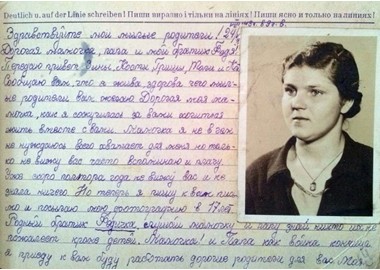 Deutlich u. auf der Linie schreiben! Пиши виразно і тільки на лініях! Пиши ясно и только на линиях!
Здравствуйте мои милые родители!
Дорогая мамочка, папа и мой братик
Передаю привет Зины, Кости, Гриши,
Сообщаю вам, что я жива, здорова чего
родители вам желаю Дорогая моя
как я соскучилась за вами
жить вместе с вами. Мамочка я не в чем
не нуждаюсь всего хватает для меня но
ко не вижу вас часто вспоминаю и плачу
Уже года полтора года не вижу вас и не
знала ничего. Но теперь я пишу к вам
мо и посылаю мою фотографию в 17 лет.
братик слушай мамочку и папу знай никто
пожалеет кроме детей. Мамочка! и Папа как война
я приеду к вам буду работать дорогие родители для вас